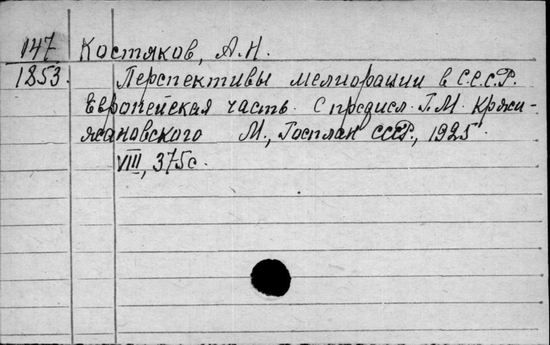 147 Костяков, А.Н.
1853. Перспективы мелиорации в С.С.С.Р.
Европейская часть. С предисл. Г.М. Кржи-
жановского М., Госплан СССР, 1925.
VIII, 375с.